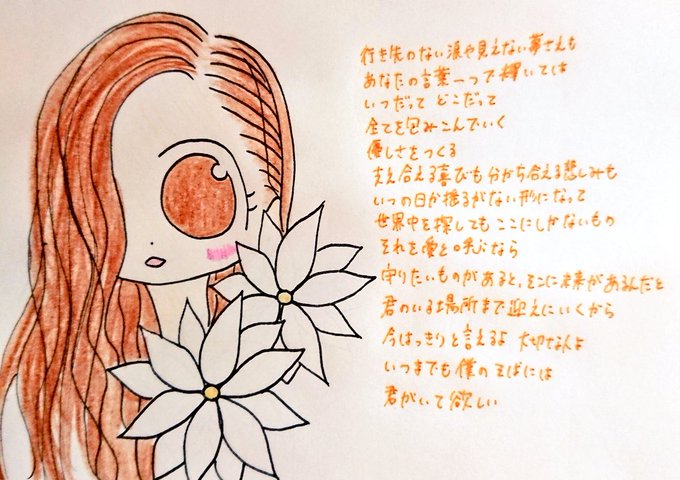 行き先のない涙や見えない夢さえも
あなたの言葉一つで輝いては
いつだって どこだって
全てを包みこんでいく
優しさをつくる
支え合える喜びも分かち合える悲しみも
いつの日か揺るがない形になって
世界中を探しても ここにしかないもの
それを愛と呼ぶなら
守りたいものがあると、そこに未来があるんだと
君のいる場所まで迎えにいくから
今はっきりと言えるよ 大切な人よ
いつまでも僕のそばには
君がいて欲しい